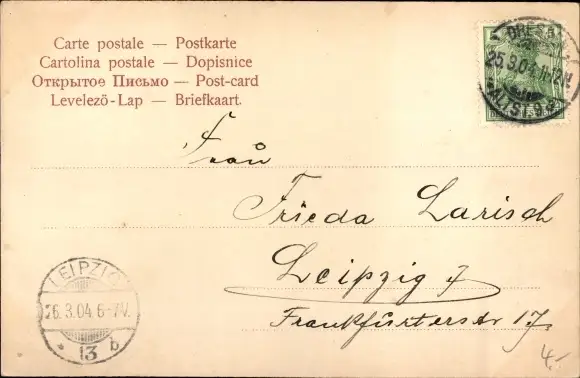 Carte postale — Postkarte
Cartolina postale — Dopisnice
Открытое Письмо — Post-card
Levelező-Lap — Briefkaart.
DRESDEN
25.3.04. 11-12V.
ALTST. 9.
Frau
Frieda Larisch
Leipzig
Frankfurterstr 17.
LEIPZIG
26.3.04 6-7V.
* 13 b
4.-